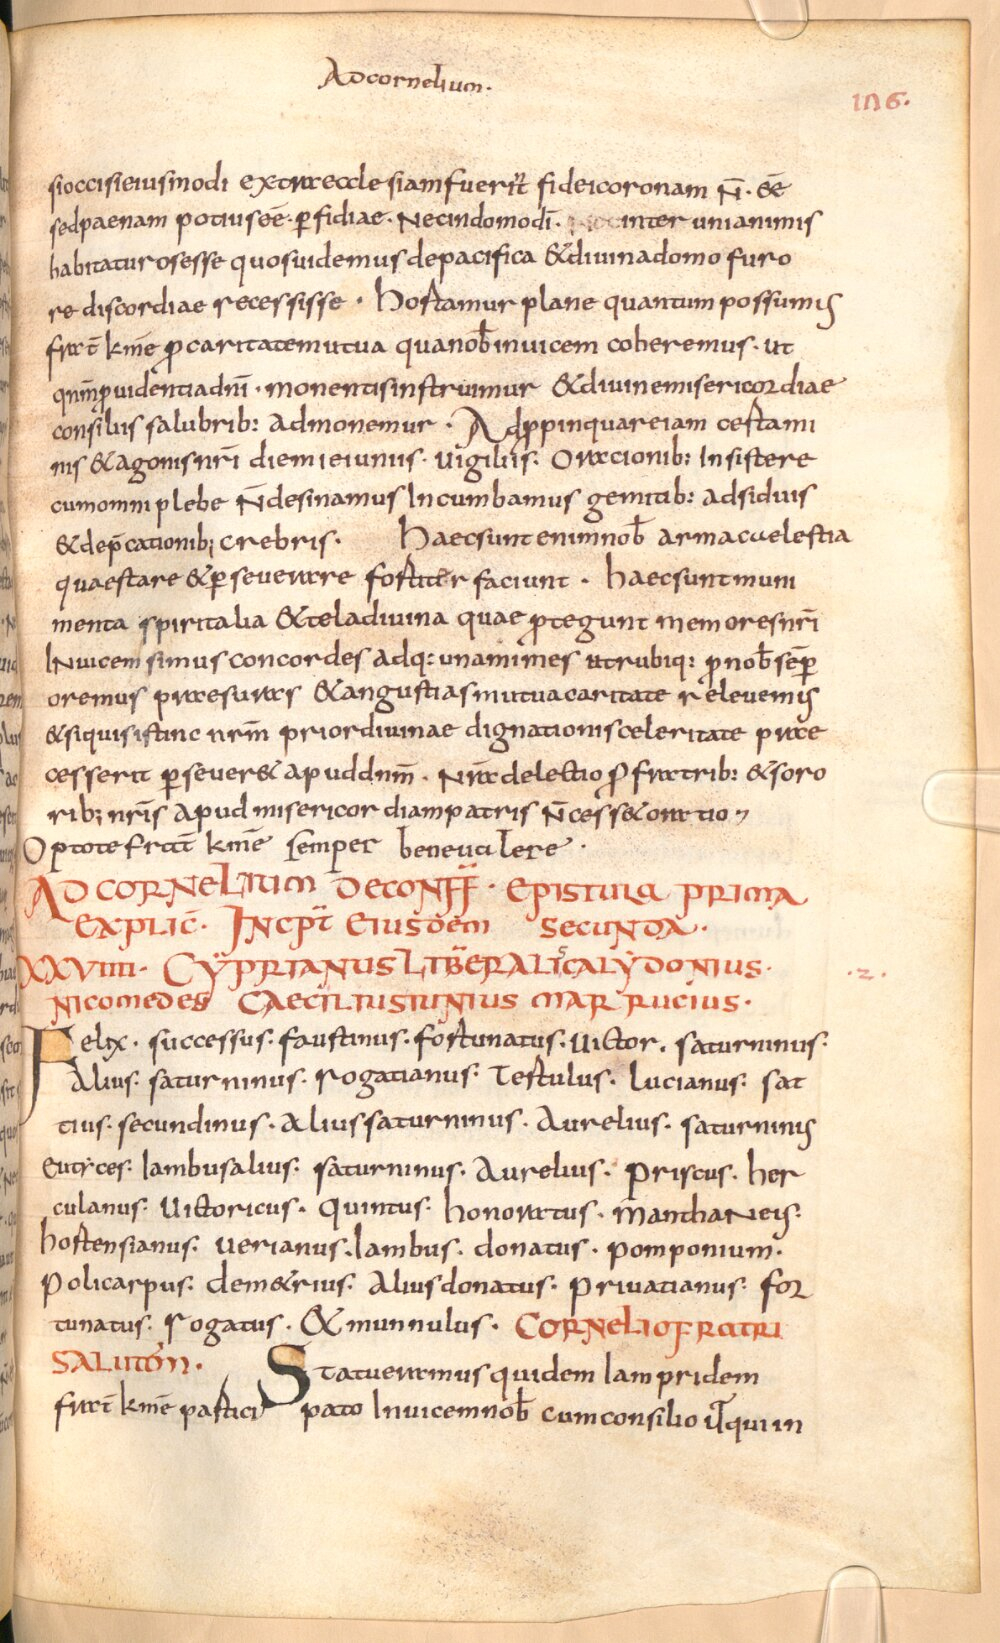 Ad cornelium.
126.
si occisi eiusmodi extra ecclesiam fuerit fidei coronam N̄. &̄
sed paenam potius eē. ꝑfidiae. Nec in domo dī. inter unianimis
habitaturos esse quos uidemus de pacifica & diuina domo furo
re discordiae recessisse. hortamur plane quantum possumus
frat̄ km̄e ꝓ caritate mutua qua nob̄ inuicem coheremus. ut
qnm̄ ꝓuidentia dnī. monentis instruimur & diuine misericordiae
consiliis salubrib: admonemur. Adꝓpinquare iam certami
nis & agonis nr̄i diem ieiuniis. uigiliis. Orationib: Insistere
cum omni plebe N̄ desinamus Incumbamus gemitib: adsiduis
& dep̄cationib; crebris. haec sunt enim nob̄ arma cuelestia
quae stare & ꝑseuerare fortiter faciunt. haec sunt muni
menta spiritalia & tela diuina quae ꝓtegunt memores nr̄i
Inuicem simus concordes adq: unanimes utrubiq: ꝓ nob̄ sēꝑ
oremus praesuras & angustias mutua caritate releuemus
& si quis istinc nrm̄ prior diuinae dignationis celeritate prae
cesserit ꝑseuer& apud dnm̄. Nr̄a delectio ꝓ fratrib: & soro
rib; nr̄is apud misericordiam patris N̄ cess& oratio
Opto te frat̄ km̄e semper bene ualere.
AD CORNELIUM DE CONFF̄. EPISTULA PRIMA
EXPLIC̄. INCPT̄ EIUSDEM SECUNDA.
XXVIIII. CYPRIANUS LIBERALIS CALYDONIUS.
NICOMEDES CAECILIUS IUNIUS MARRUCIUS.
.2.
Felix. successus. faustinus. fortunatus. Uictor. saturninus.
Alius. saturninus. rogatianus. Tertulus. lucianus. sat
tius. secundinus. Alius saturninus. Aurelius. saturninus
Eutyces. Iambus alius. saturninus. Aurelius. Priscus. her
culanus. Uictoricus. Quintus. honoratus. manthaneus.
hortensianus. uerianus. Iambus. donatus. pomponium.
Policarpus. dem&rius. Alius donatus. priuatianus. for
tunatus. rogatus. & munnulus. CORNELIO FRATRI
SALUTEM. Statueramus quidem Iam pridem
frat̄ km̄e partici pato Inuicem nob̄ cum consilio ut̄ qui in